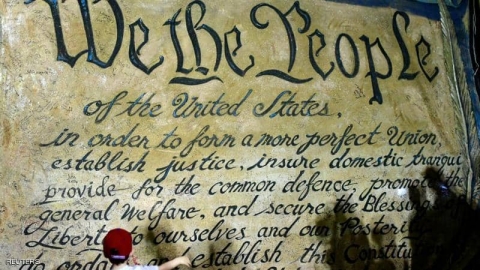 We the People
of the United States,
in order to form a more perfect Union,
establish justice, insure domestic tranqui
provide for the common defence, promote the
general Welfare, and secure the Blessing
Liberty to ourselves and our Posterity
do ordain establish this Constitu
REUTERS